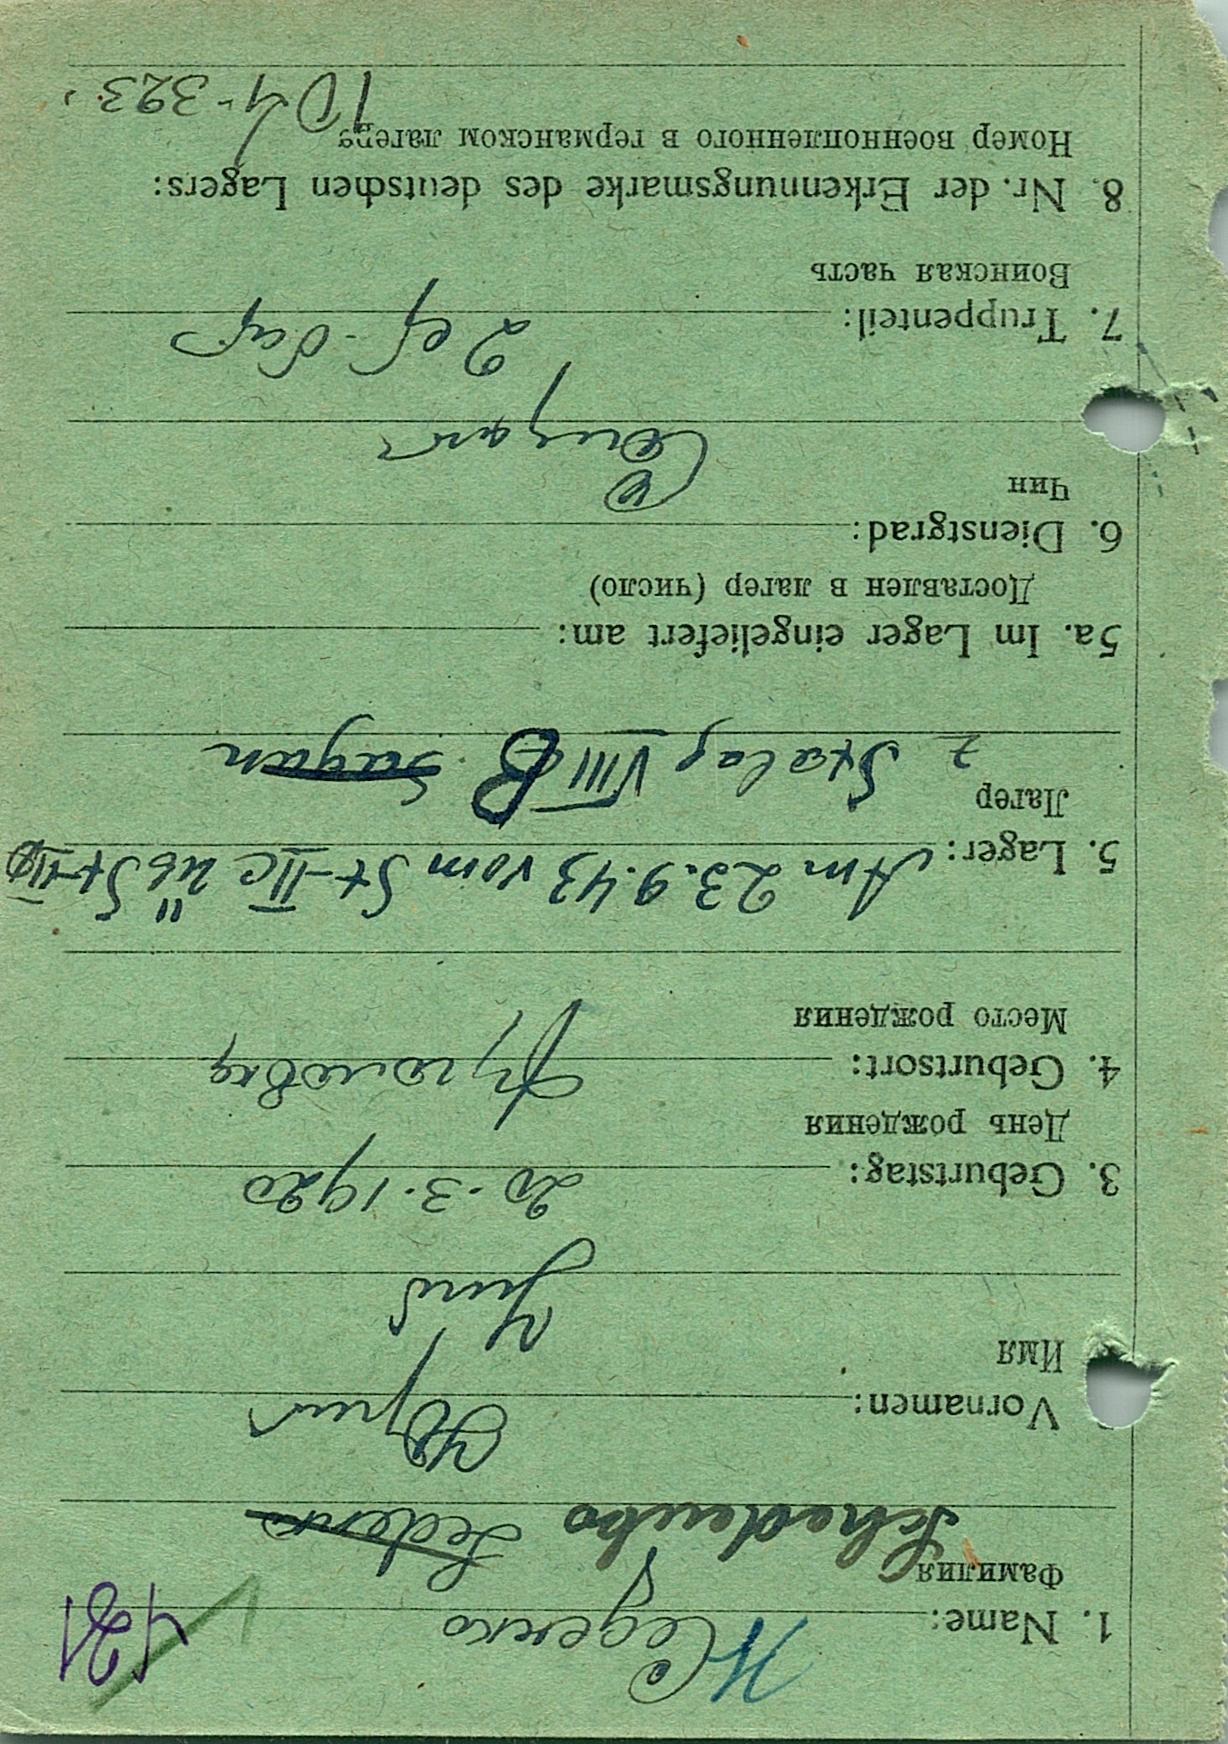 421
1. Name: Седенко
Фамилия
Schedenko Sedenko
Vornamen: Юрий
Имя
Juri
3. Geburtstag: 20.3.1920
День рождения
4. Geburtsort:
Место рождения
5. Lager: Am 23.9.43 vom St-IIC üb St-II
Лагерь
z Stalag VIII B Sagan
5a. Im Lager eingeliefert am:
Доставлен в лагер (число)
6. Dienstgrad:
Чин
7. Truppenteil:
Воинская часть
8. Nr. der Erkennungsmarke des deutschen Lagers:
Номер военнопленного в германском лагере
104-323.